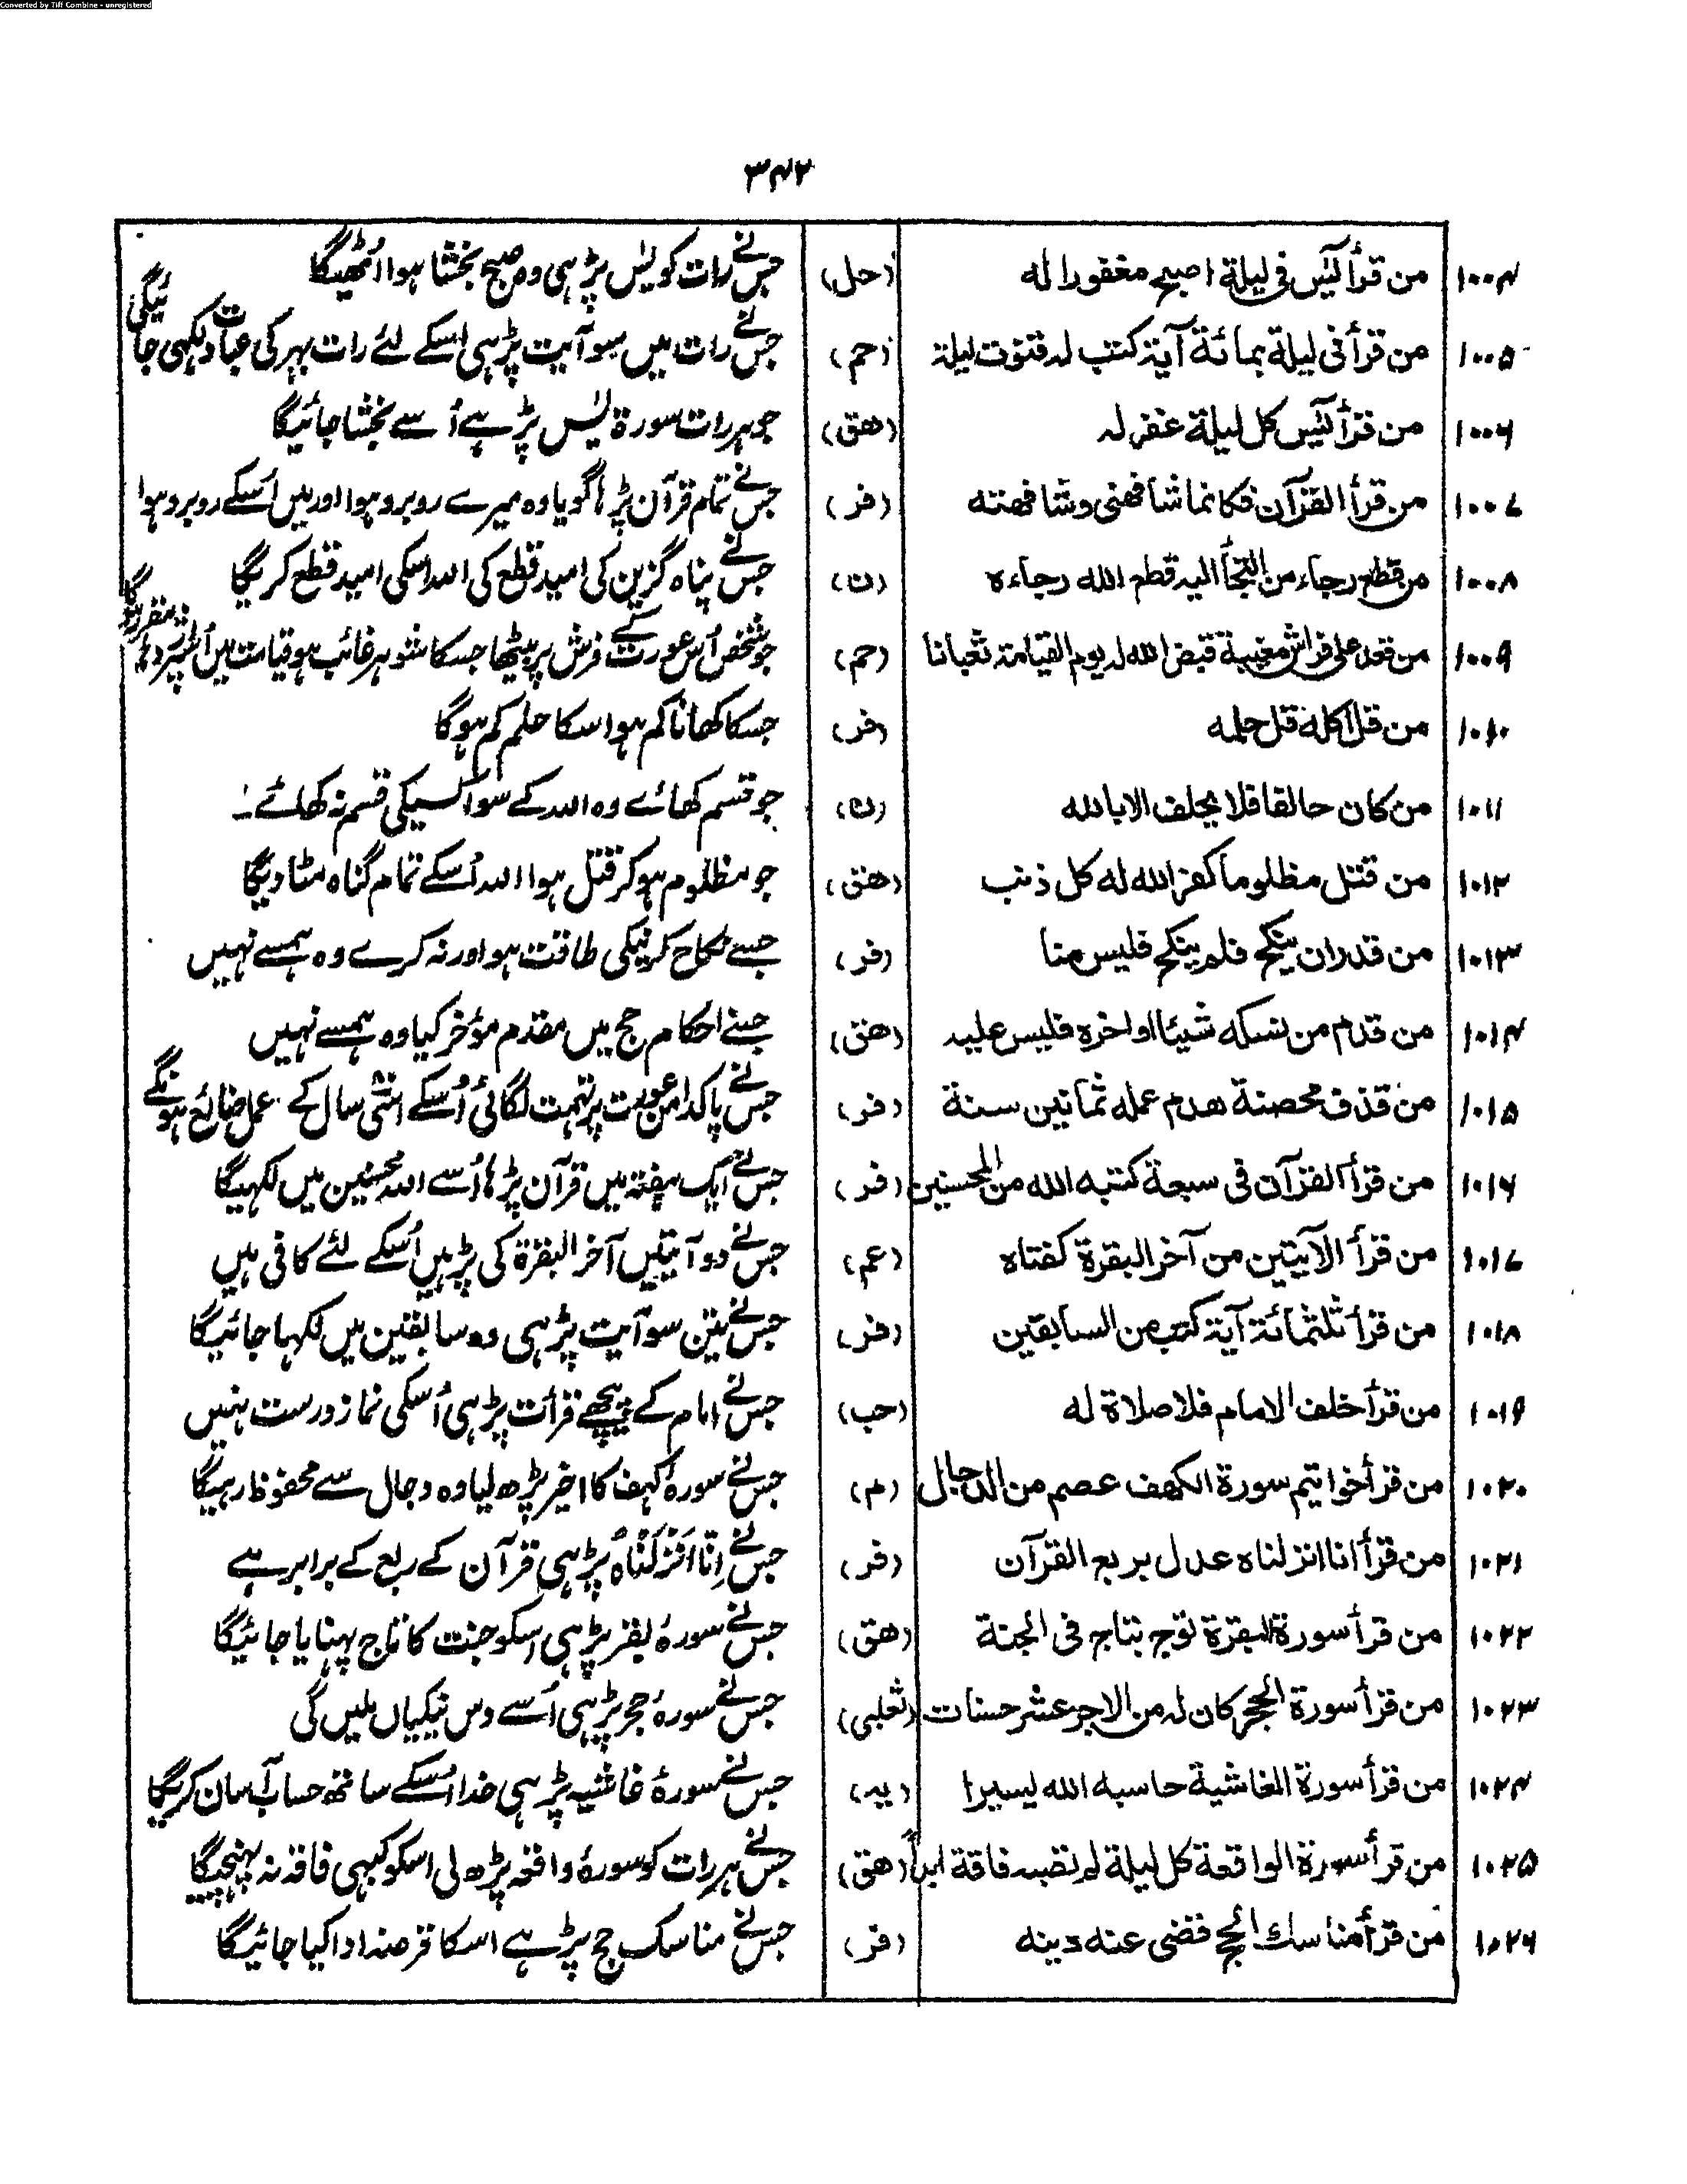 Converted by Tiff Combine - unregistered
۳۴۲
۱۰۰۴ من قرأ یٰس فی لیلة اصبح مغفورا له (حل) جس نے رات کو یٰس پڑہی وہ صبح بخشا ہوا اُٹھیگا
۱۰۰۵ من قرأ فی لیلة بمائة آیة کتب له قنوت لیلة (حم) جس نے رات میں سو آیت پڑہی اسکے لئے رات بہر کی عبادت لکہی جائیگی
۱۰۰۶ من قرأ یٰس کل لیلة غفر له (هق) جو ہر رات سورۃ یٰس پڑہے اُسے بخشا جائیگا
۱۰۰۷ من قرأ القرآن فکانما شافهنی وشافهته (فر) جس نے تمام قرآن پڑہا گویا وہ میرے روبرو ہوا اور میں اُسکے روبرو ہوا
۱۰۰۸ من قطع رجاء من التجأ الیه قطع الله رجاءه (ن) جس نے پناہ گزین کی امید قطع کی اللہ اسکی امید قطع کریگا
۱۰۰۹ من قعد علی فراش مغیبة قیض الله له یوم القیامة ثعبانا (حم) جو شخص اُس عورت کے فرش پر بیٹھا جسکا شوہر غائب ہو قیامت میں اُسپر
۱۰۱۰ من قل اکله قل حلمه (فر) جسکا کھانا کم ہو اسکا حلم کم ہوگا
۱۰۱۱ من کان حالفا فلا یحلف الا بالله (ن) جو قسم کھائے وہ اللہ کے سوا کسیکی قسم نہ کھائے ۔
۱۰۱۲ من قتل مظلوما کفر الله له کل ذنب (هق) جو مظلوم ہو کر قتل ہوا اللہ اُسکے تمام گناہ مٹا دیگا
۱۰۱۳ من قدر ان ینکح فلم ینکح فلیس منا (فر) جسے نکاح کرنیکی طاقت ہو اور نہ کرے وہ ہمسے نہیں
۱۰۱۴ من قدم من نسکه شیئا او اخره فلیس علیه (هق) جسنے احکام حج میں مقدم مؤخر کیا وہ ہمسے نہیں
۱۰۱۵ من قذف محصنة هدم عمله ثمانین سنة (فر) جس نے پاکدامن عورت پر تہمت لگائی اُسکے اسّی سال کے عمل ضائع ہونگے
۱۰۱۶ من قرأ القرآن فی سبعة کتبه الله من المحسنین (فر) جس نے ایک ہفتہ میں قرآن پڑہا اُسے اللہ محسنین میں لکہیگا
۱۰۱۷ من قرأ الآیتین من آخر البقرة کفتاه (عم) جس نے دو آیتیں آخر البقرۃ کی پڑہیں اُسکے لئے کافی ہیں
۱۰۱۸ من قرأ ثلثمائة آیة کتب من السابقین (فر) جس نے تین سو آیت پڑہی وہ سابقین میں لکہا جائیگا
۱۰۱۹ من قرأ خلف الامام فلا صلاة له (حب) جس نے امام کے پیچھے قرأت پڑہی اُسکی نماز درست نہیں
۱۰۲۰ من قرأ خواتیم سورة الکهف عصم من الدجال (م) جس نے سورۂ کہف کا اخیر پڑھ لیا وہ دجال سے محفوظ رہیگا
۱۰۲۱ من قرأ انا انزلناه عدل بربع القرآن (فر) جس نے اِنّا اَنْزَلْنَاہُ پڑہی قرآن کے ربع کے برابر ہے
۱۰۲۲ من قرأ سورة البقرة توج بتاج فی الجنة (هق) جس نے سورۂ بقر پڑہی اسکو جنت کا تاج پہنایا جائیگا
۱۰۲۳ من قرأ سورة الحجر کان له من الاجر عشر حسنات (ثعلبی) جس نے سورۂ حجر پڑہی اُسے دس نیکیاں ملیں گی
۱۰۲۴ من قرأ سورة الغاشیة حاسبه الله یسیرا (ید) جس نے سورۂ غاشیہ پڑہی خدا اُسکے ساتھ حساب آسان کریگا
۱۰۲۵ من قرأ سورة الواقعة کل لیلة لم تصبه فاقة ابداً (هق) جس نے ہر رات کو سورۂ واقعہ پڑھ لی اسکو کبہی فاقہ نہ پہنچیگا
۱۰۲۶ من قرأ مناسك الحج قضی عنه دینه (فر) جس نے مناسک حج پڑہے اسکا قرضہ ادا کیا جائیگا